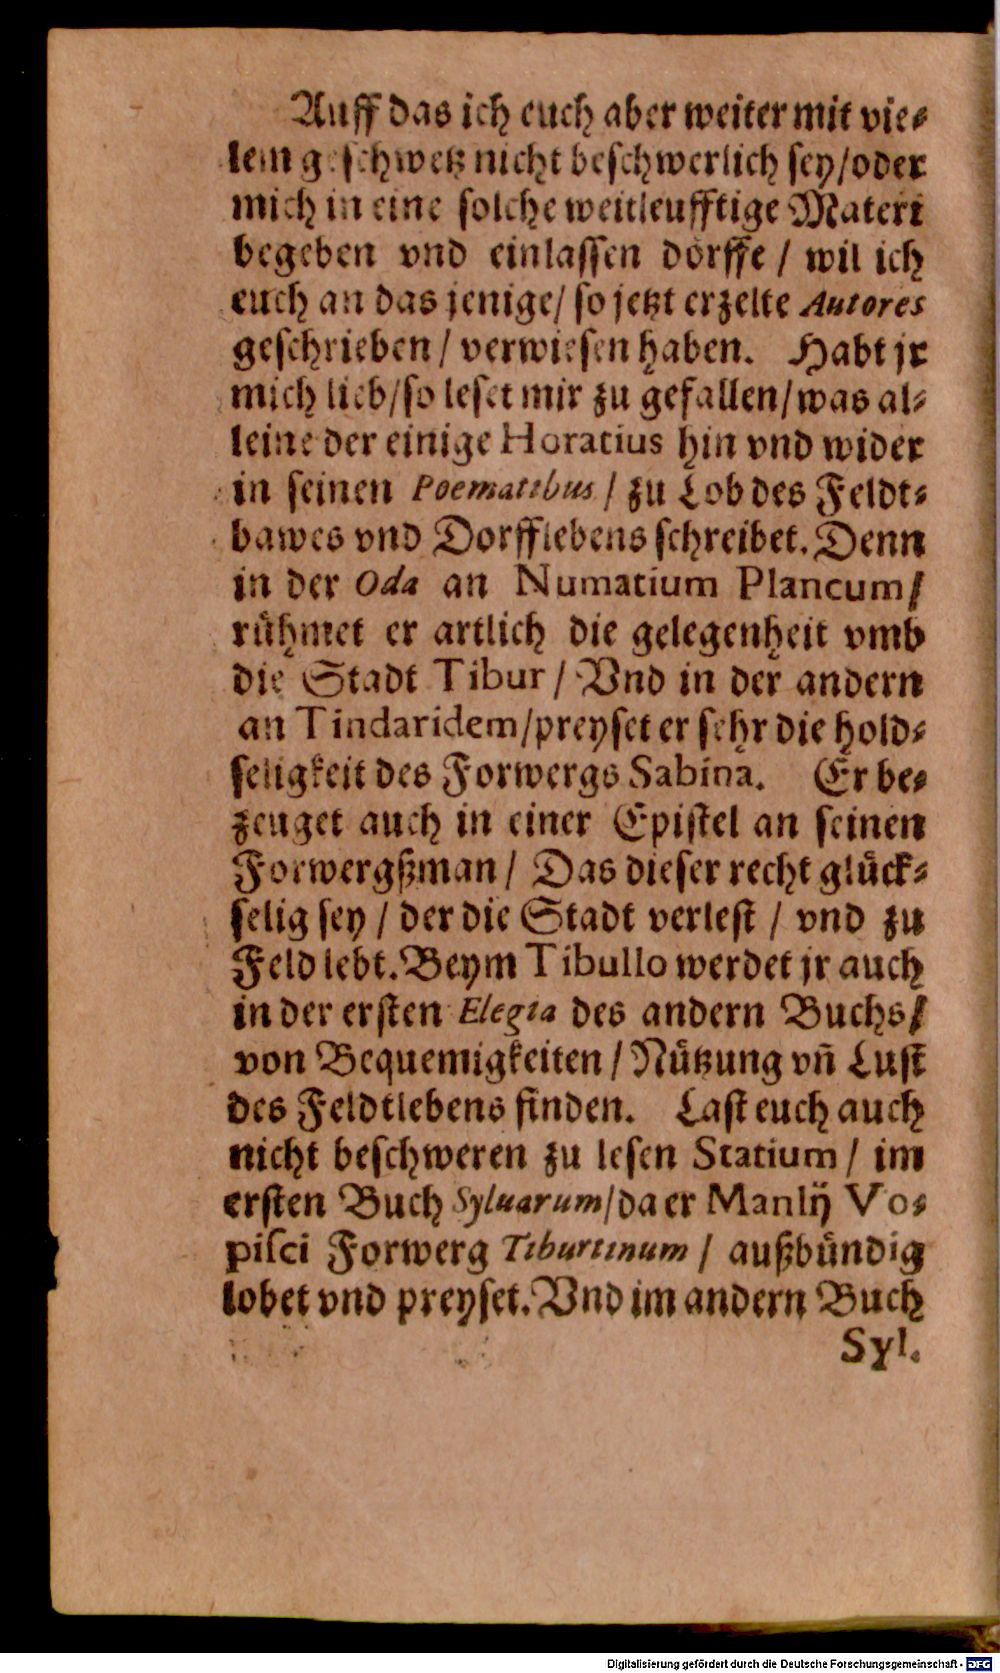 Auff das ich euch aber weiter mit vie⸗
lem geschwetz nicht beschwerlich sey/oder
mich in eine solche weitleufftige Materi
begeben vnd einlassen dörffe / wil ich
euch an das jenige/ so jetzt erzelte Autores
geschrieben / verwiesen haben. Habt jr
mich lieb/so leset mir zu gefallen/was al⸗
leine der einige Horatius hin vnd wider
in seinen Poematibus / zu Lob des Feldt⸗
bawes vnd Dorfflebens schreibet. Denn
in der Oda an Numatium Plancum/
rühmet er artlich die gelegenheit vmb
die Stadt Tibur / Vnd in der andern
an Tindaridem/preyset er sehr die hold⸗
seligkeit des Forwergs Sabina. Er be⸗
zeuget auch in einer Epistel an seinen
Forwergßman / Das dieser recht glück⸗
selig sey / der die Stadt verlest / vnd zu
Feld lebt. Beym Tibullo werdet jr auch
in der ersten Elegia des andern Buchs/
von Bequemigkeiten / Nützung vñ Lust
des Feldtlebens finden. Last euch auch
nicht beschweren zu lesen Statium / im
ersten Buch Syluarum/da er Manlij Vo⸗
pisci Forwerg Tiburtinum / außbündig
lobet vnd preyset. Vnd im andern Buch
Syl.
Digitalisierung gefördert durch die Deutsche Forschungsgemeinschaft - DFG